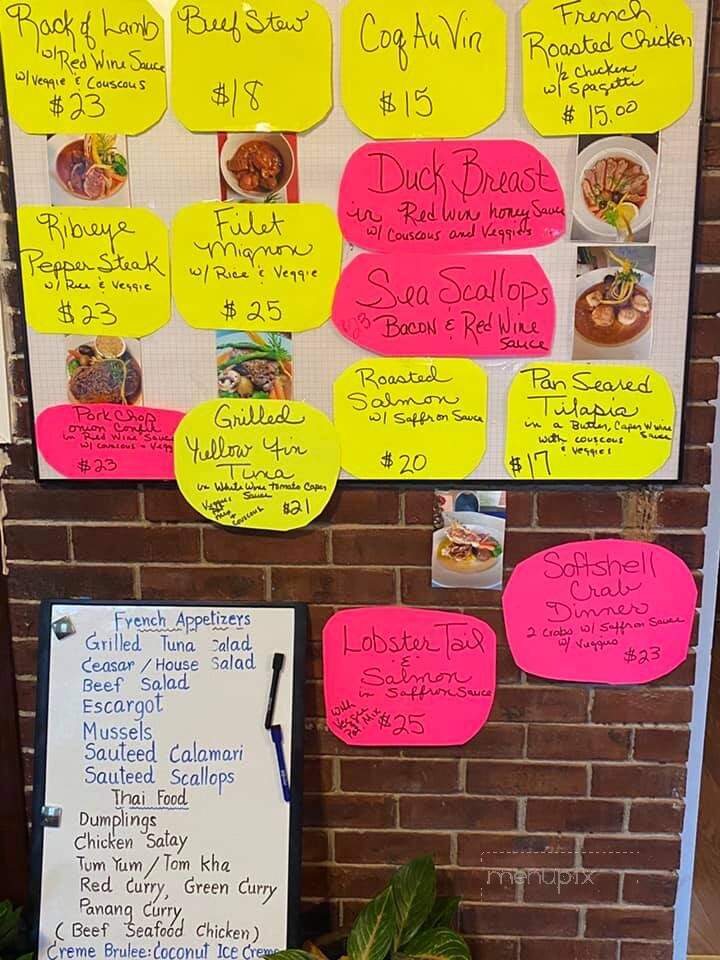 Rack of Lamb
w/Red Wine Sauce
w/ Veggie & Couscous
$23
Beef Stew
$18
Coq Au Vin
$15
French
Roasted Chicken
1/2 Chicken
w/ Spagetti
$15.00
Duck Breast
in Red Wine honey Sauce
w/ Couscous and Veggies
Ribeye
Pepper Steak
w/ Rice & Veggie
$23
Filet
Mignon
w/ Rice & Veggie
$25
Sea Scallops
$23 BACON & Red Wine
Sauce
Pork Chop
onion Confit
in Red Wine Sauce
w/ couscous + Vegg
$23
Grilled
Yellow Fin
Tuna
in White Wine Tomato Caper
Sauce
Veggies
+ couscous
$21
Roasted
Salmon
w/ Saffron Sauce
$20
Pan Seared
Tilapia
in a Butter, Caper Wine
Sauce
with couscous
& Veggies
$17
Softshell
Crab
Dinner
2 Crabs w/ Saffron Sauce
w/ Veggies
$23
Lobster Tail
&
Salmon
in Saffron Sauce
With
$25
French Appetizers
Grilled Tuna Salad
Ceasar / House Salad
Beef Salad
Escargot
Mussels
Sauteed Calamari
Sauteed Scallops
Thai Food
Dumplings
Chicken Satay
Tum Yum / Tom Kha
Red Curry, Green Curry
Panang Curry
(Beef Seafood Chicken)
Creme Brulee: Coconut Ice Creme
menupix